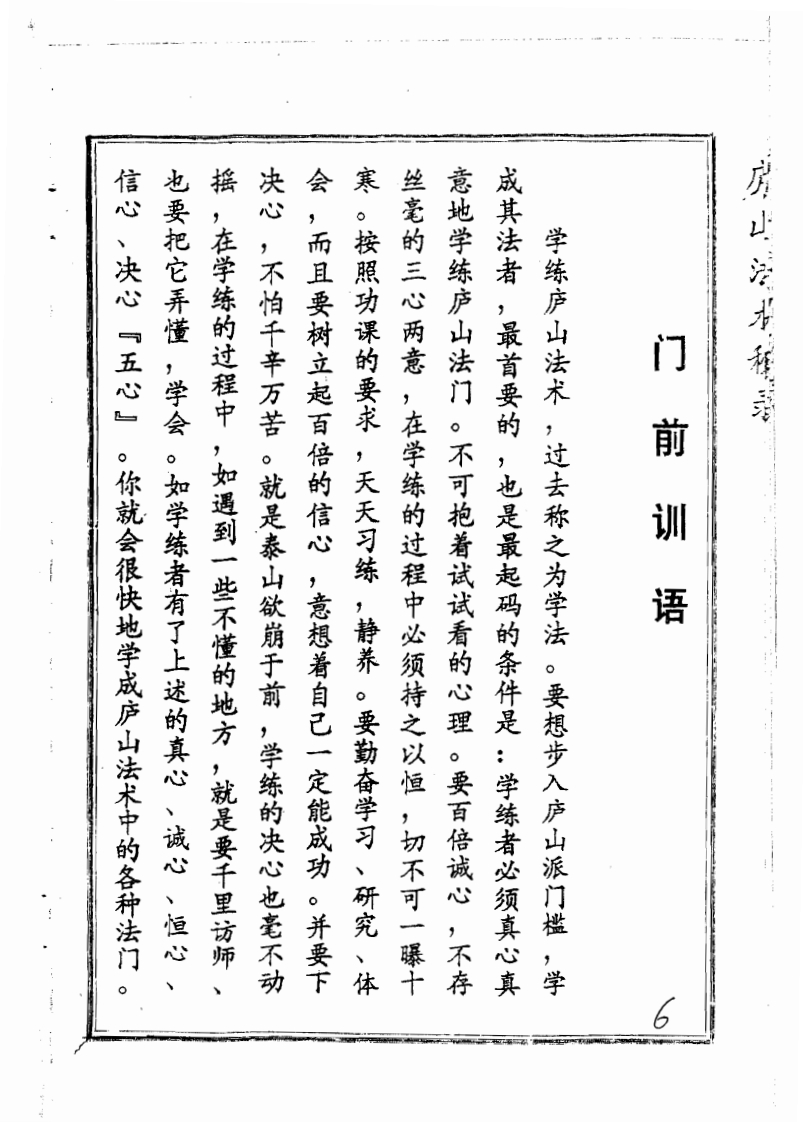 庐山法术秘录
门前训语
学练庐山法术，过去称之为学法。要想步入庐山派门槛，学
成其法者，最首要的，也是最起码的条件是：学练者必须真心真
意地学练庐山法门。不可抱着试试看的心理。要百倍诚心，不存
丝毫的三心两意，在学练的过程中必须持之以恒，切不可一曝十
寒。按照功课的要求，天天习练，静养。要勤奋学习、研究、体
会，而且要树立起百倍的信心，意想着自己一定能成功。并要下
决心，不怕千辛万苦。就是泰山欲崩于前，学练的决心也毫不动
摇，在学练的过程中，如遇到一些不懂的地方，就是要千里访师、
也要把它弄懂，学会。如学练者有了上述的真心、诚心、恒心、
信心、决心『五心』。你就会很快地学成庐山法术中的各种法门。
6